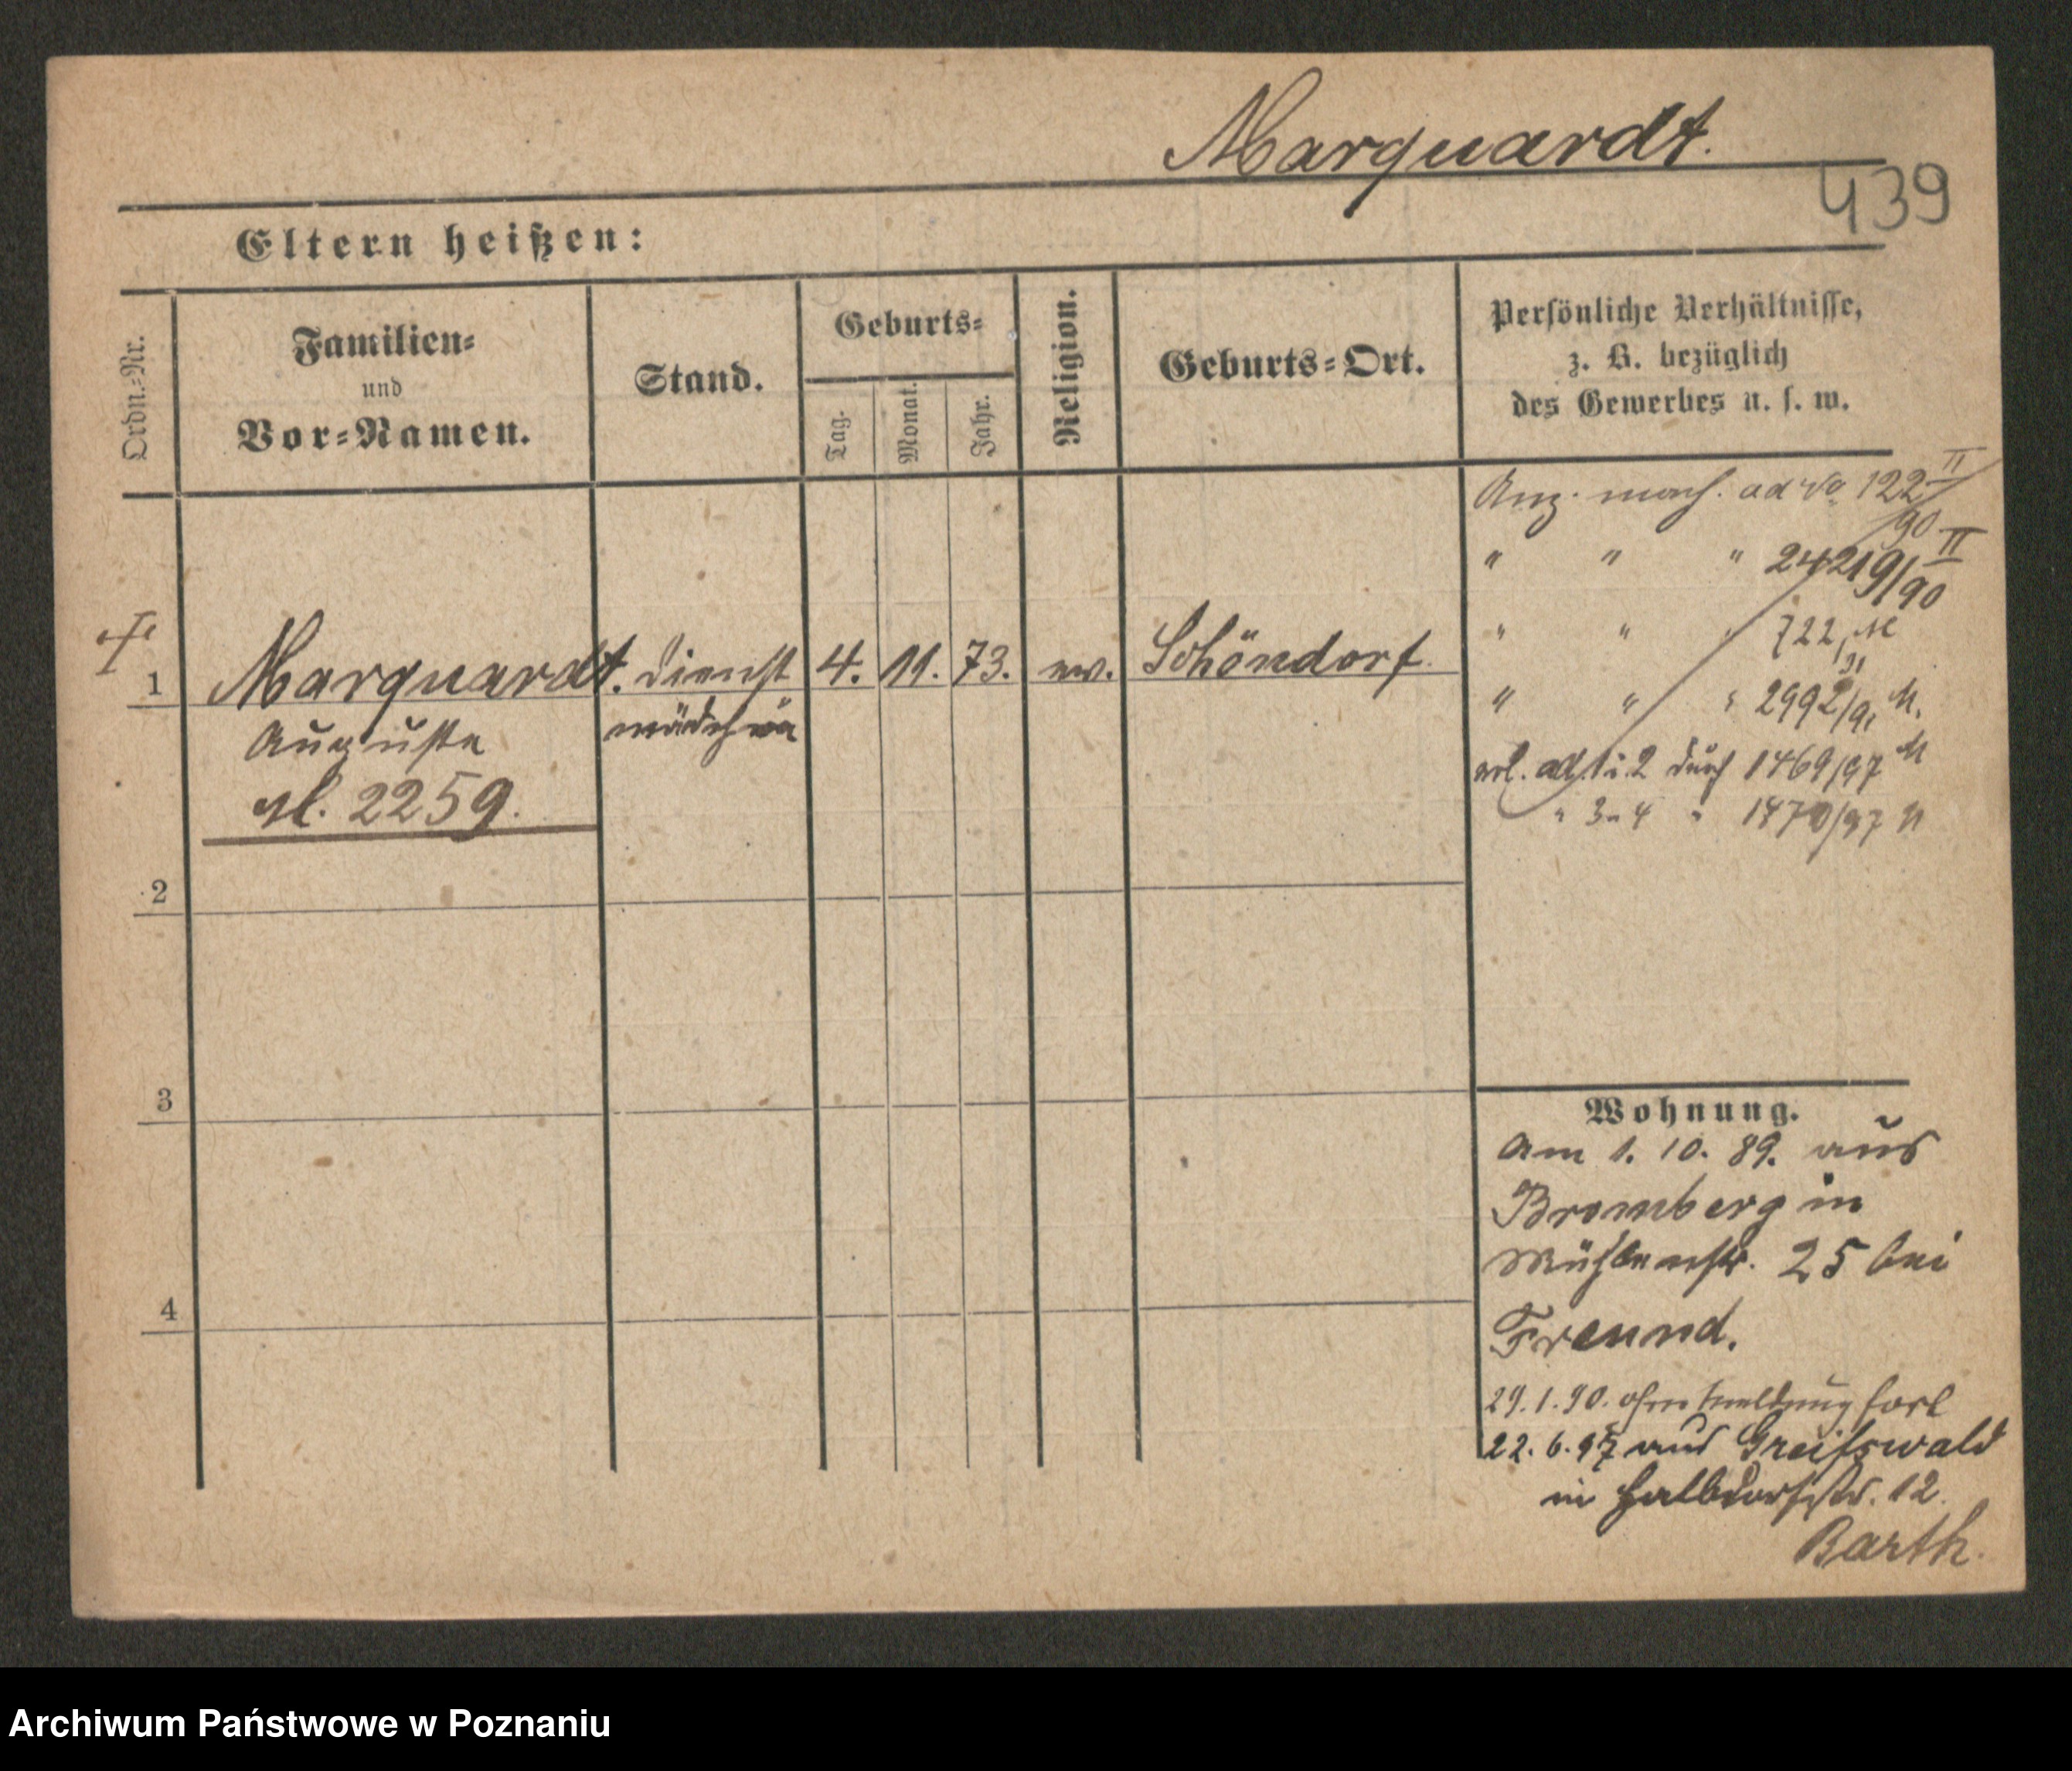 Marquardt.
439
Eltern heißen:
Ordn.-Nr.
Familien-
und
Vor-Namen.
Stand.
Geburts-
Tag.
Monat.
Jahr.
Religion.
Geburts-Ort.
Persönliche Verhältnisse,
z. B. bezüglich
des Gewerbes u. s. w.
122 II
90
" " " 24219/90 II
" " " 722
" " " 2992/91 M.
erl. ad 1 u. 2 durch 1469/97 M
" 3 u 4 " 1470/97 M
1 Marquardt. Dienst 4. 11. 73. ev. Schöndorf.
Auguste mädchen
2259.
2
3
4
Wohnung.
Am 1. 10. 89. aus
Bromberg in
Mühlenstr. 25 bei
Freund.
29. 1. 90. ohne Meldung fort
22. 6. 97 aus Greifswald
in Halbdorfstr. 12.
Barth.
Archiwum Państwowe w Poznaniu